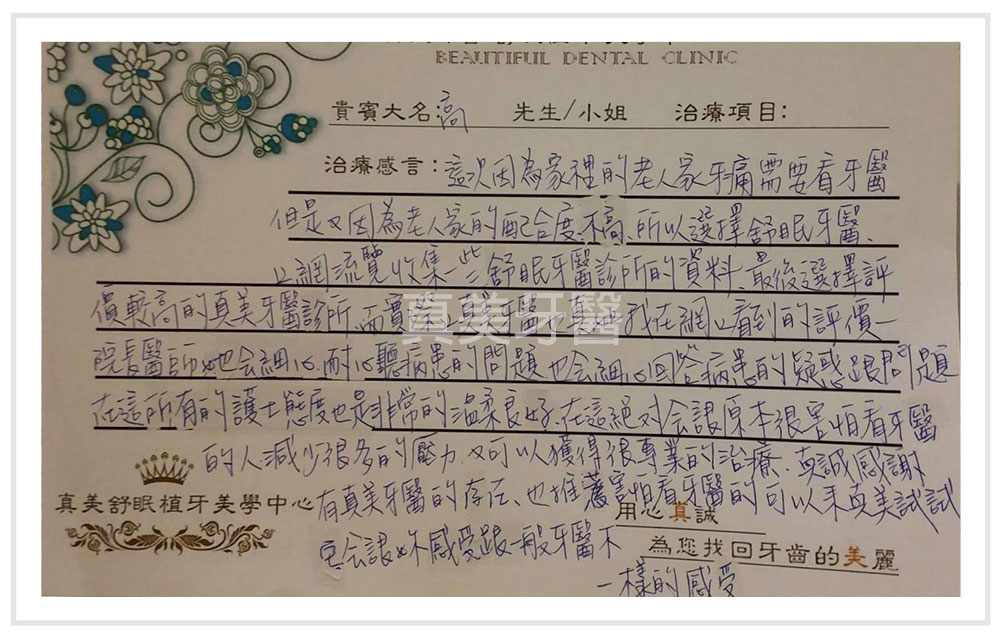 BEAUTIFUL DENTAL CLINIC
貴賓大名:高 先生/小姐 治療項目:
治療感言:這次因為家裡的老人家牙痛需要看牙醫
但是又因為老人家的配合度不高、所以選擇舒眠牙醫、
上網流覽收集一些舒眠牙醫診所的資料、最後選擇評
價較高的真美牙醫診所、而實際上真美牙醫也真如我在網上看到的評價一
院長醫師她也会細心、耐心聽病患的問題也会細心回答病患的疑惑跟問題
在這所有的護士態度也是非常的溫柔良好、在這絕对会讓原本很害怕看牙醫
的人減少很多的壓力、又可以獲得很專業的治療、真誠感謝
有真美牙醫的存在、也推薦害怕看牙醫的可以來真美試試
会讓妳感受跟一般牙醫不
一樣的感受
真美牙醫
真美舒眠植牙美學中心
用心真誠
為您找回牙齒的美麗